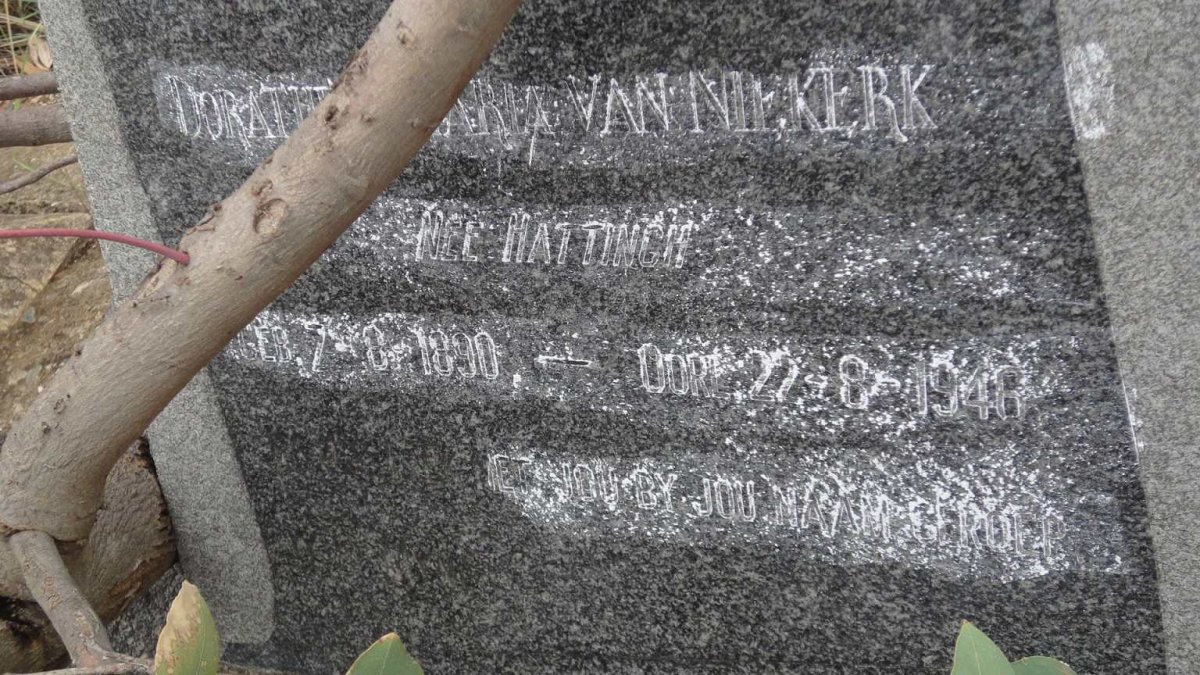 VAN NIEKERK
NEE HATTINGH
GEB. 7-8-1890 — OORL. 27-8-1946
JOU BY JOU NAAM GEROEP